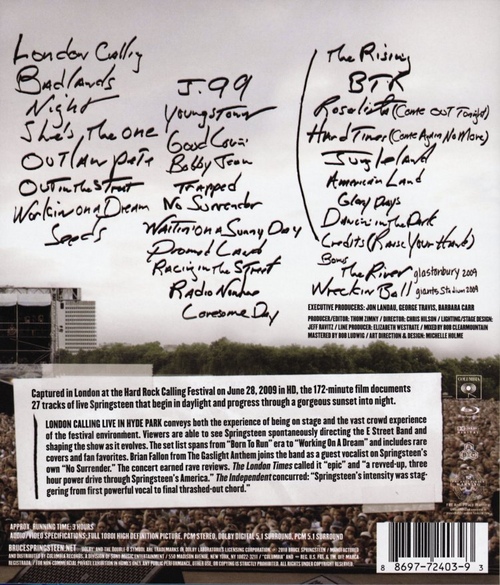 London Calling
Badlands
Night
She's The One
Outlaw Pete
Out in the Street
Workin on a Dream
Seeds
J.99
Youngstown
Good Lovin'
Bobby Jean
Trapped
No Surrender
Waitin' on a Sunny Day
Promised Land
Racing in the Street
Radio Nowhere
Lonesome Day
The Rising
BTR
Rosalita (Come Out Tonight)
Hard Times (Come Again No More)
Jungleland
American Land
Glory Days
Dancin' in the Dark
Credits (Raise Your Hand)
Bonus
The River glastonbury 2009
Wreckin Ball giants stadium 2009
EXECUTIVE PRODUCERS: JON LANDAU, GEORGE TRAVIS, BARBARA CARR
PRODUCER/EDITOR: THOM ZIMNY / DIRECTOR: CHRIS HILSON / LIGHTING/STAGE DESIGN:
JEFF RAVITZ / LINE PRODUCER: ELIZABETH WESTRATE / MIXED BY BOB CLEARMOUNTAIN
MASTERED BY BOB LUDWIG / ART DIRECTION & DESIGN: MICHELLE HOLME
Captured in London at the Hard Rock Calling Festival on June 28, 2009 in HD, the 172-minute film documents
27 tracks of live Springsteen that begin in daylight and progress through a gorgeous sunset into night.
LONDON CALLING LIVE IN HYDE PARK conveys both the experience of being on stage and the vast crowd experience
of the festival environment. Viewers are able to see Springsteen spontaneously directing the E Street Band and
shaping the show as it evolves. The set list spans from "Born To Run" era to "Working On A Dream" and includes rare
covers and fan favorites. Brian Fallon from The Gaslight Anthem joins the band as a guest vocalist on Springsteen's
own "No Surrender." The concert earned rave reviews. The London Times called it "epic" and "a reved-up, three
hour power drive through Springsteen's America." The Independent concurred: "Springsteen's intensity was stag-
gering from first powerful vocal to final thrashed-out chord."
COLUMBIA
APPROX. RUNNING TIME: 3 HOURS
AUDIO/VIDEO SPECIFICATIONS: FULL 1080I HIGH DEFINITION PICTURE, PCM STEREO, DOLBY DIGITAL 5.1 SURROUND, PCM 5.1 SURROUND.
BRUCESPRINGSTEEN.NET
8 8697-72403-9 3